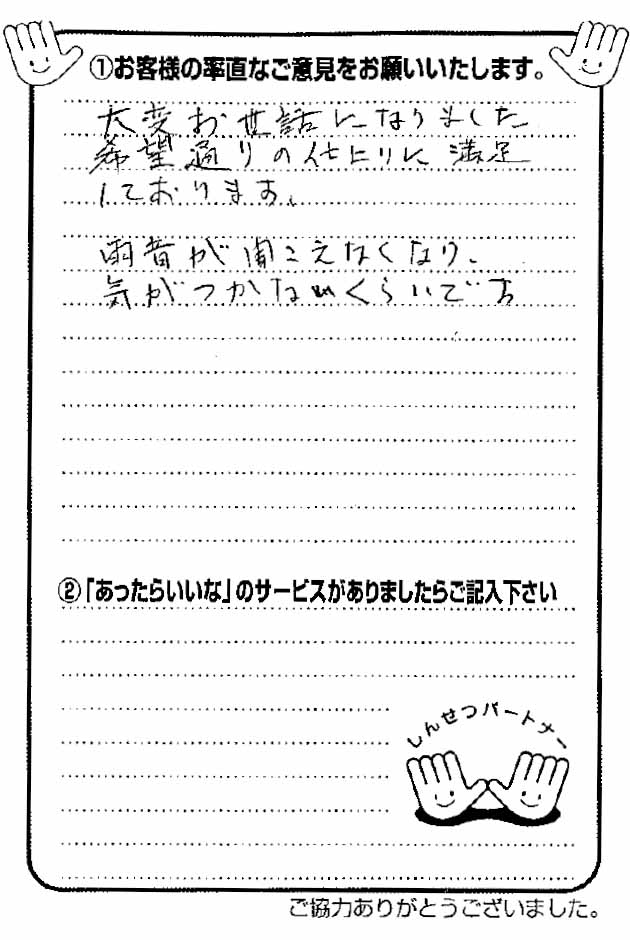 ①お客様の率直なご意見をお願いいたします。
大変お世話になりました
希望通りの仕上りに満足
しております。
雨音が聞こえなくなり、
気がつかないくらいです
②「あったらいいな」のサービスがありましたらご記入下さい
しんせつパートナー
ご協力ありがとうございました。